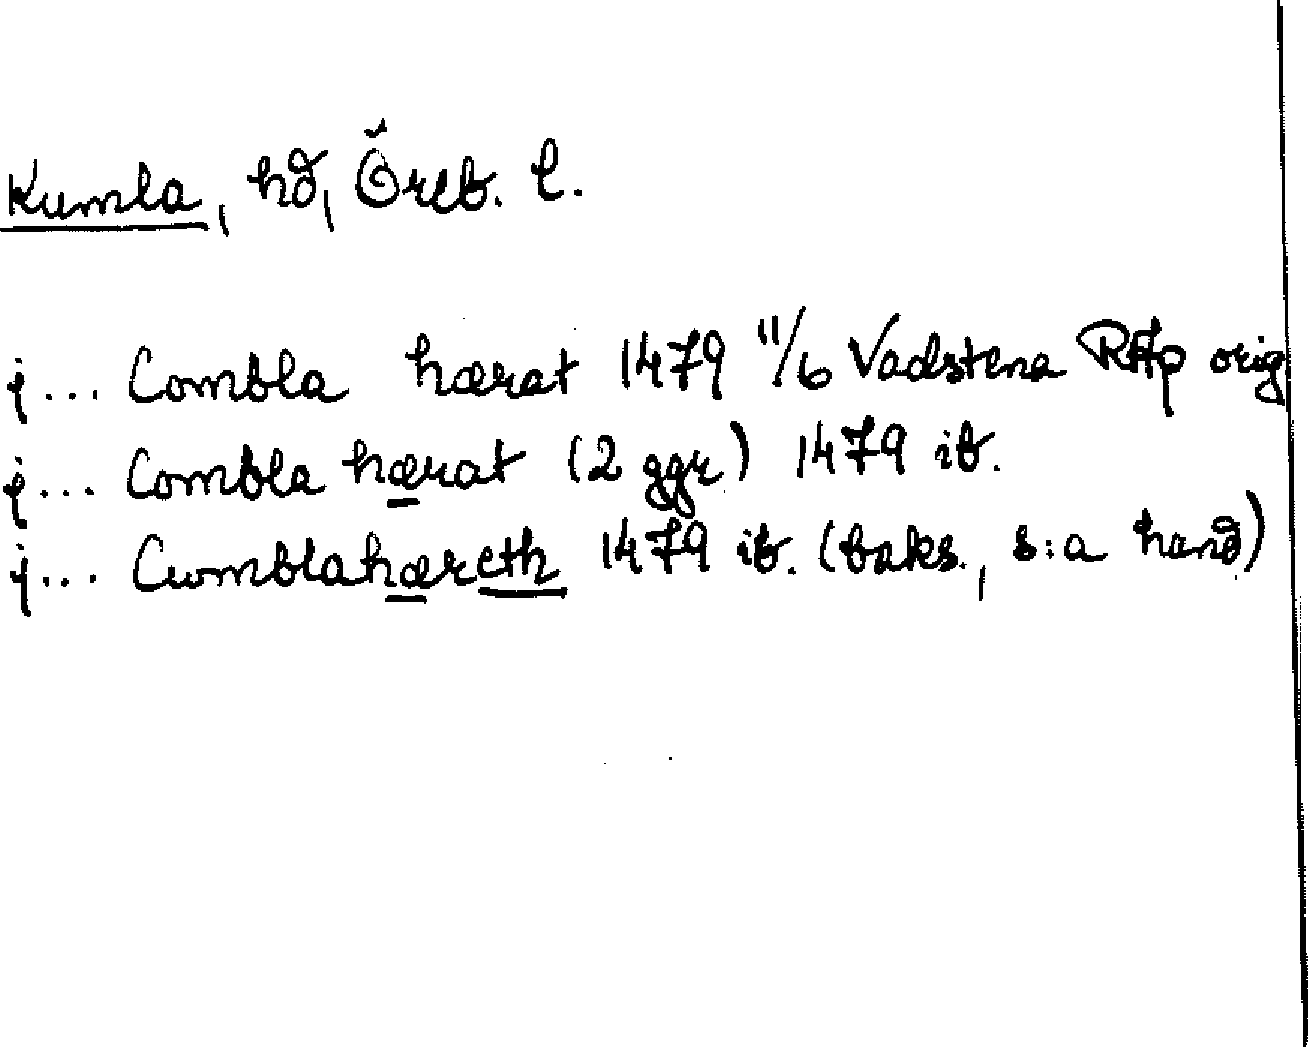 Kumla, hd, Öreb. l.
j... Combla hærat 1479 11/6 Vadstena RAp orig
j... Combla hærat (2 ggr) 1479 ib.
j... Cumblahæreth 1479 ib. (baks., s:a hand)